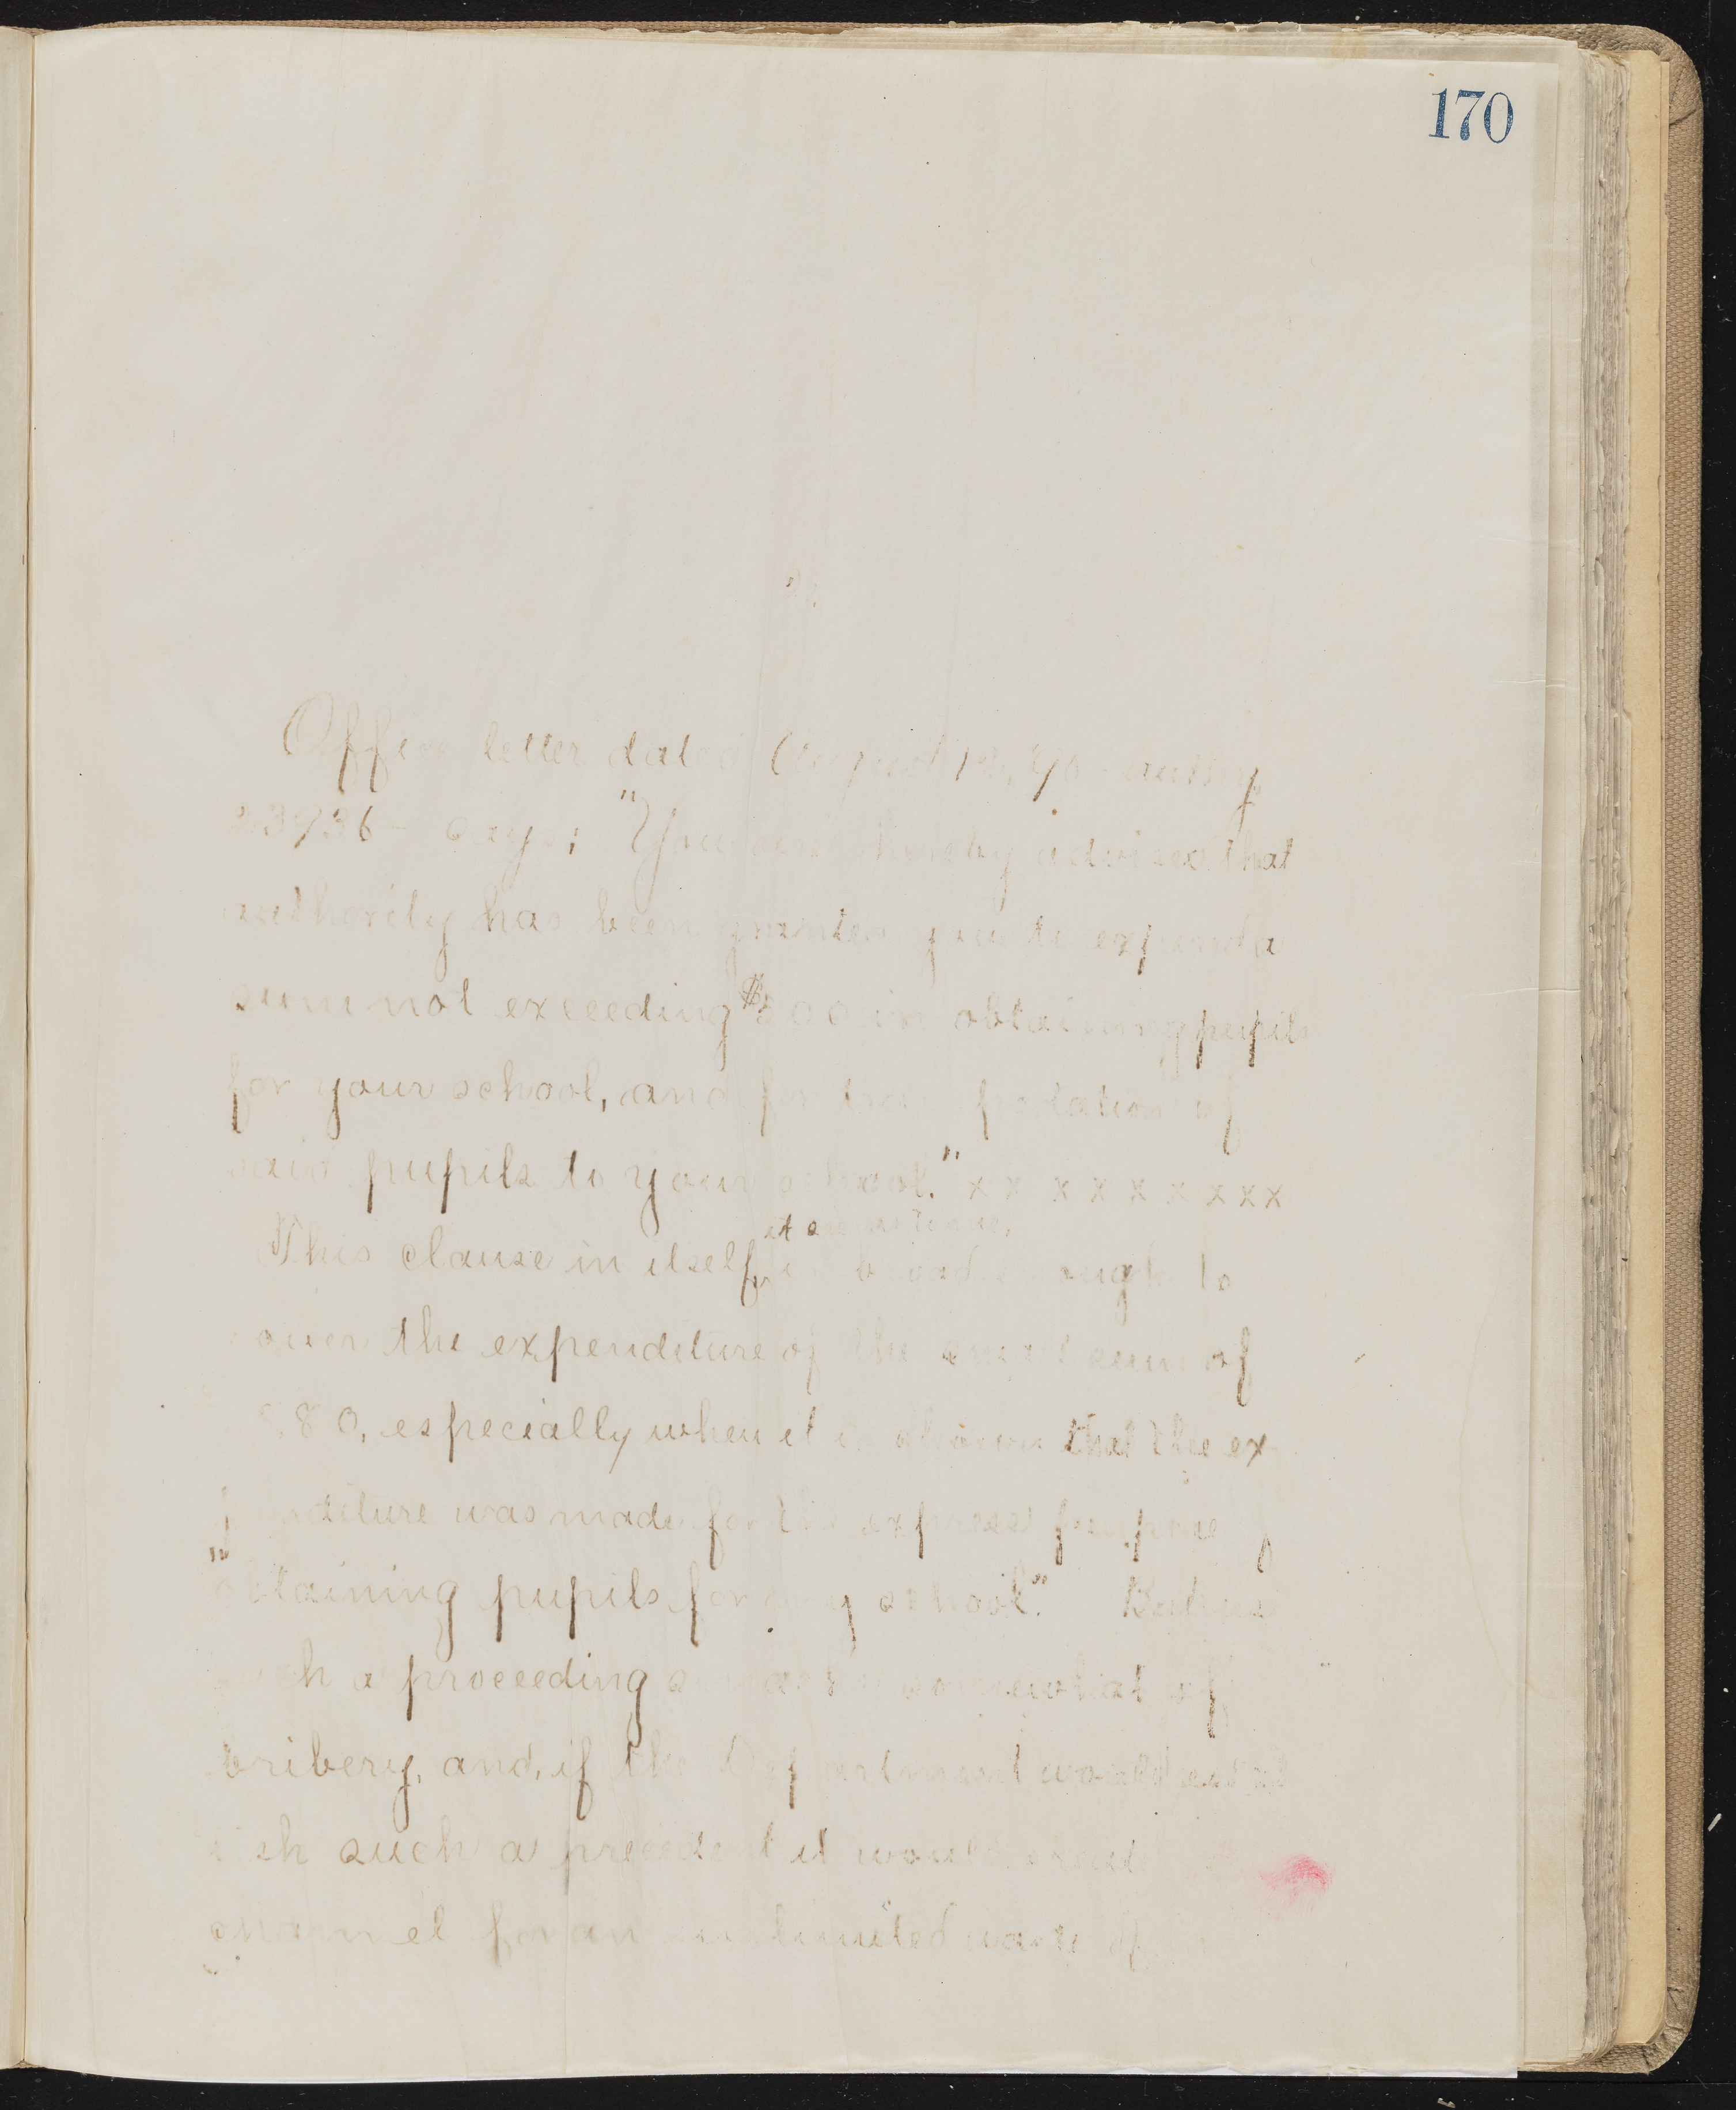 170
2.
Office letter dated August 12, 90 – authy
23736 – says; "You are hereby advised that
authority has been granted you to expend a
sum not exceeding $500 in obtaining pupils
for your school, and for transportation of
said pupils to your school." x x x x x x x x x
it seems to me,
This clause in itself, is broad enough to
cover the expenditure of the small sum of
80, especially when it is shown that the ex
penditure was made for the express purpose of
"obtaining pupils for my school." But
such a proceeding smacks somewhat of
bribery, and, if the Department would establ
ish such a precedent it would create
channel for an unlimited waste of